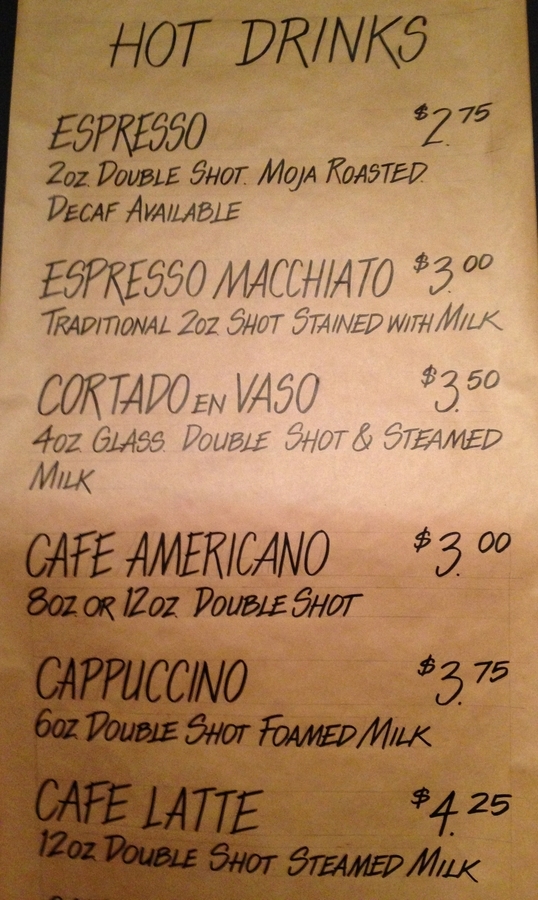 HOT DRINKS
ESPRESSO $2.75
2oz. Double Shot. Moja Roasted.
Decaf Available
ESPRESSO MACCHIATO $3.00
Traditional 2oz. Shot Stained with Milk
CORTADO EN VASO $3.50
4oz. Glass. Double Shot & Steamed
Milk
CAFE AMERICANO $3.00
8oz. or 12oz. Double Shot
CAPPUCCINO $3.75
6oz. Double Shot Foamed Milk
CAFE LATTE $4.25
12oz. Double Shot Steamed Milk